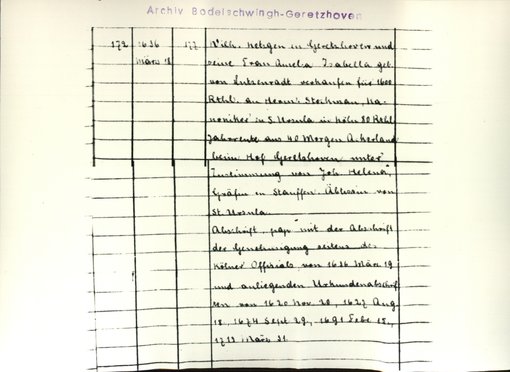 Archiv Bodelschwingh-Geretzhoven
172 1636 März 8 177 Wilh. Ketzgen in Geretzhoven und
seine Frau Amelia Isabella geb.
von Lutzenradt verkaufen für 1600
Rthl. an Herm. Stockman, Ka-
noniker in S. Ursula in Köln 80 Rthl
Jahrrente aus 40 Morgen Ackerland
beim Hof Geretshoven unter
Zustimmung von Joh. Helena,
Gräfin in Stauffen Äbtissin von
St. Ursula.
Abschrift, pap. mit der Abschrift
der Genehmigung seitens des
Kölner Offizials von 1636 März 19
und anliegenden Urkundenabschrif
ten von 1620 Nov. 20, 1627 Aug
18, 1674 Sept 29, 1691 Febr 15.,
1713 März 31